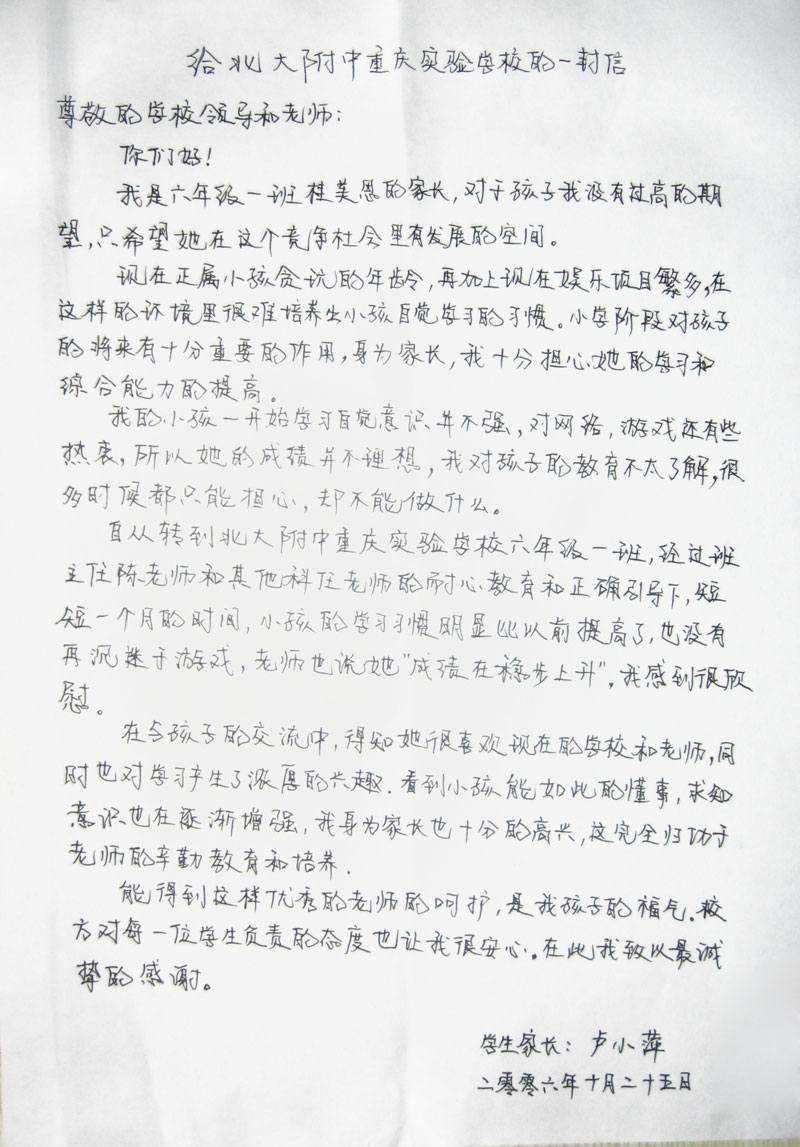 给北大附中重庆实验学校的一封信
尊敬的学校领导和老师:
你们好!
我是六年级一班桂芙恩的家长,对于孩子我没有过高的期
望,只希望她在这个竞争社会里有发展的空间。
现在正属小孩贪玩的年龄,再加上现在娱乐项目繁多,在
这样的环境里很难培养出小孩自觉学习的习惯。小学阶段对孩子
的将来有十分重要的作用,身为家长,我十分担心她的学习和
综合能力的提高。
我的小孩一开始学习自觉意识并不强,对网络,游戏还有些
热衷,所以她的成绩并不理想,我对孩子的教育不太了解,很
多时候都只能担心,却不能做什么。
自从转到北大附中重庆实验学校六年级一班,经过班
主任陈老师和其他科任老师的耐心教育和正确引导下,短
短一个月的时间,小孩的学习习惯明显比以前提高了,也没有
再沉迷于游戏,老师也说她"成绩在稳步上升",我感到很欣
慰。
在与孩子的交流中,得知她很喜欢现在的学校和老师,同
时也对学习产生了浓厚的兴趣.看到小孩能如此的懂事,求知
意识也在逐渐增强,我身为家长也十分的高兴,这完全归功于
老师的辛勤教育和培养.
能得到这样优秀的老师的呵护,是我孩子的福气.校
方对每一位学生负责的态度也让我很安心.在此我致以最诚
挚的感谢。
学生家长:卢小萍
二零零六年十月二十五日